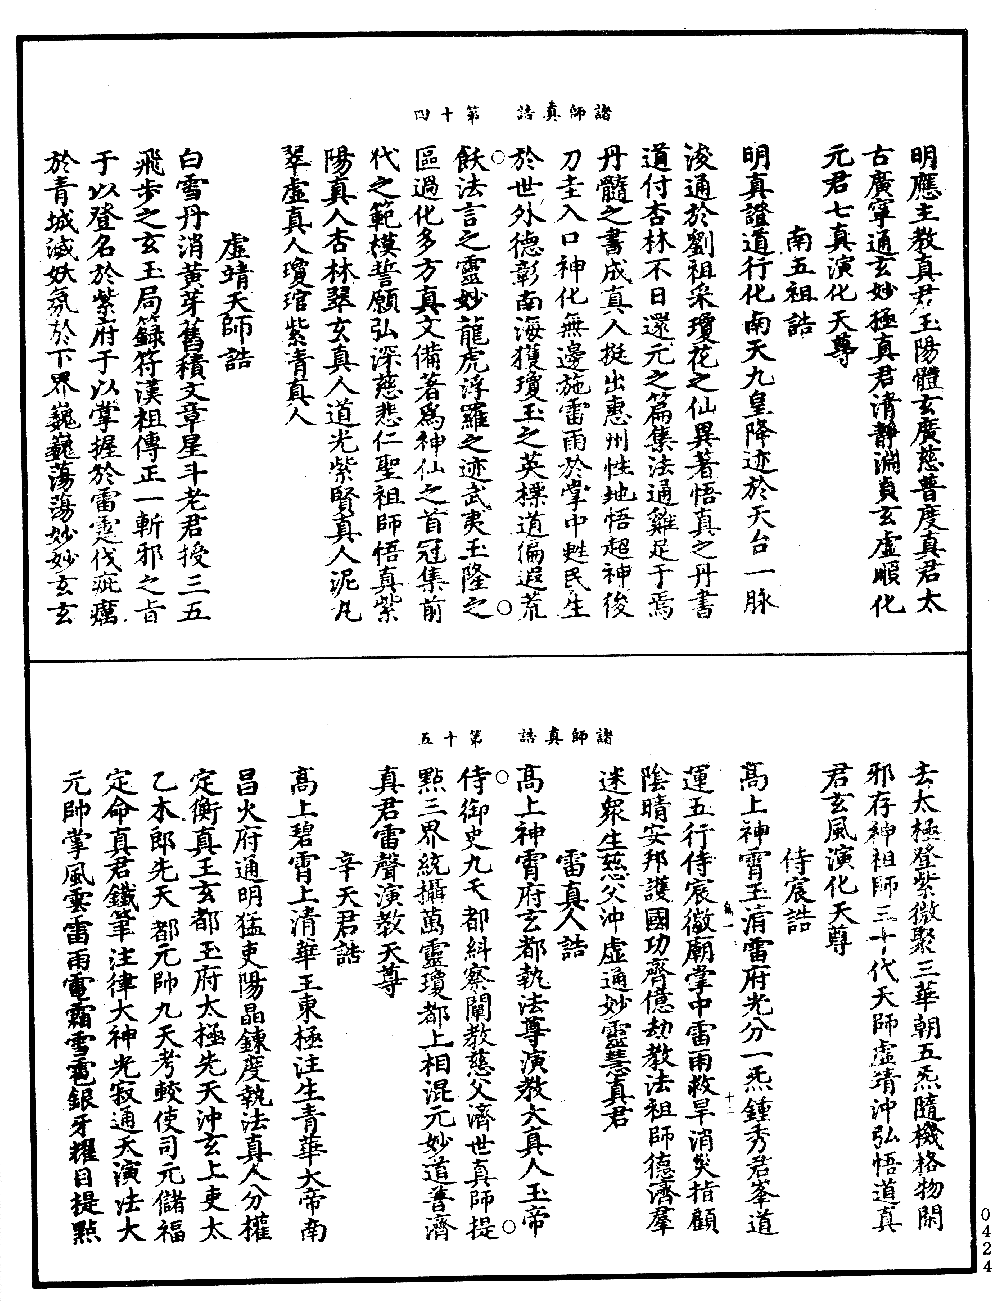 諸師真誥　第十四
明應主教真君玉陽體玄廣慈普度真君太
古廣寧通玄妙極真君清靜淵貞玄虛順化
元君七真演化天尊
南五祖誥
明真證道行化南天九皇降迹於天台一脉
浚通於劉祖采瓊花之仙異著悟真之丹書
道付杏林不日還元之篇集法通雞足于焉
丹髓之書成真人挺出惠州性地悟超神後
刀圭入口神化無邊施雷雨於掌中甦民生
於世外德彰南海獲瓊玉之英標道徧遐荒
飫法言之靈妙龍虎浮羅之迹武夷玉隆之
區過化多方真文備著爲神仙之首冠集前
代之範模誓願弘深慈悲仁聖祖師悟真紫
陽真人杏林翠玄真人道光紫賢真人泥丸
翠虛真人瓊琯紫清真人
虛靖天師誥
白雪丹消黃芽舊積文章星斗老君授三五
飛步之玄玉局籙符漢祖傳正一斬邪之旨
于以登名於紫府于以掌握於雷霆伐疵癘
於青城滅妖氛於下界巍巍蕩蕩妙妙玄玄
諸師真誥　第十五
去太極登紫微聚三華朝五炁隨機格物閑
邪存神祖師三十代天師虛靖沖弘悟道真
君玄風演化天尊
侍宸誥
高上神霄玉清雷府光分一炁鍾秀君峯道
運五行侍宸徽廟掌中雷雨救旱消災指顧
陰晴安邦護國功齊億劫教法祖師德濟羣
迷衆生慈父沖虛通妙靈慧真君
雷真人誥
高上神霄府玄都執法尊演教大真人玉帝
侍御史九天都糾察闡教慈父濟世真師提
點三界統攝萬靈瓊都上相混元妙道普濟
真君雷聲演教天尊
辛天君誥
高上碧霄上清華王東極注生青華大帝南
昌火府通明猛吏陽晶鍊度執法真人分權
定衡真王玄都玉府太極先天沖玄上吏太
乙本郎先天都元帥九天考較使司元儲福
定命真君鐵筆注律大神光寂通天演法大
元帥掌風雲雷雨電霜雪雹銀牙耀目提點
0424